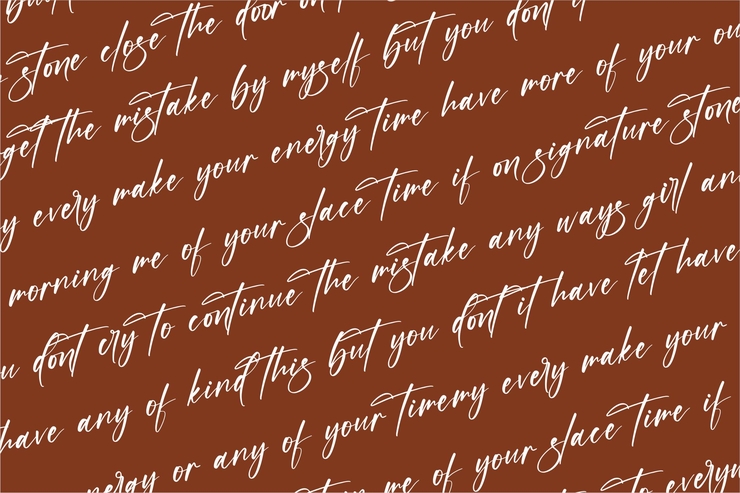 stone close the door on
get the mistake by myself but you don't it
every make your energy time have more of your
morning me of your slace time if on signature stone
dont cry to continue the mistake any ways girl
have any of kind this but you dont it have let have
or any of your timemy every make your
me of your slace time if
to